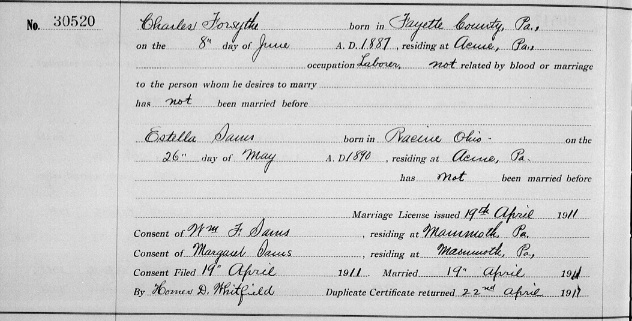 No. 30520
Charles Forsythe born in Fayette County, Pa.,
on the 8" day of June A. D. 1887, residing at Acme, Pa.,
occupation Laborer, not related by blood or marriage
to the person whom he desires to marry
has not been married before
Estella Sams born in Racine Ohio - on the
26" day of May A. D 1890, residing at Acme, Pa.
has not been married before
Marriage License issued 19th April 1911
Consent of Wm F. Sams , residing at Mammoth, Pa.
Consent of Margaret Sams , residing at Mammoth, Pa,
Consent Filed 19" April 1911 Married 19" April 1911
By Homer D. Whitfield Duplicate Certificate returned 22nd April 1911